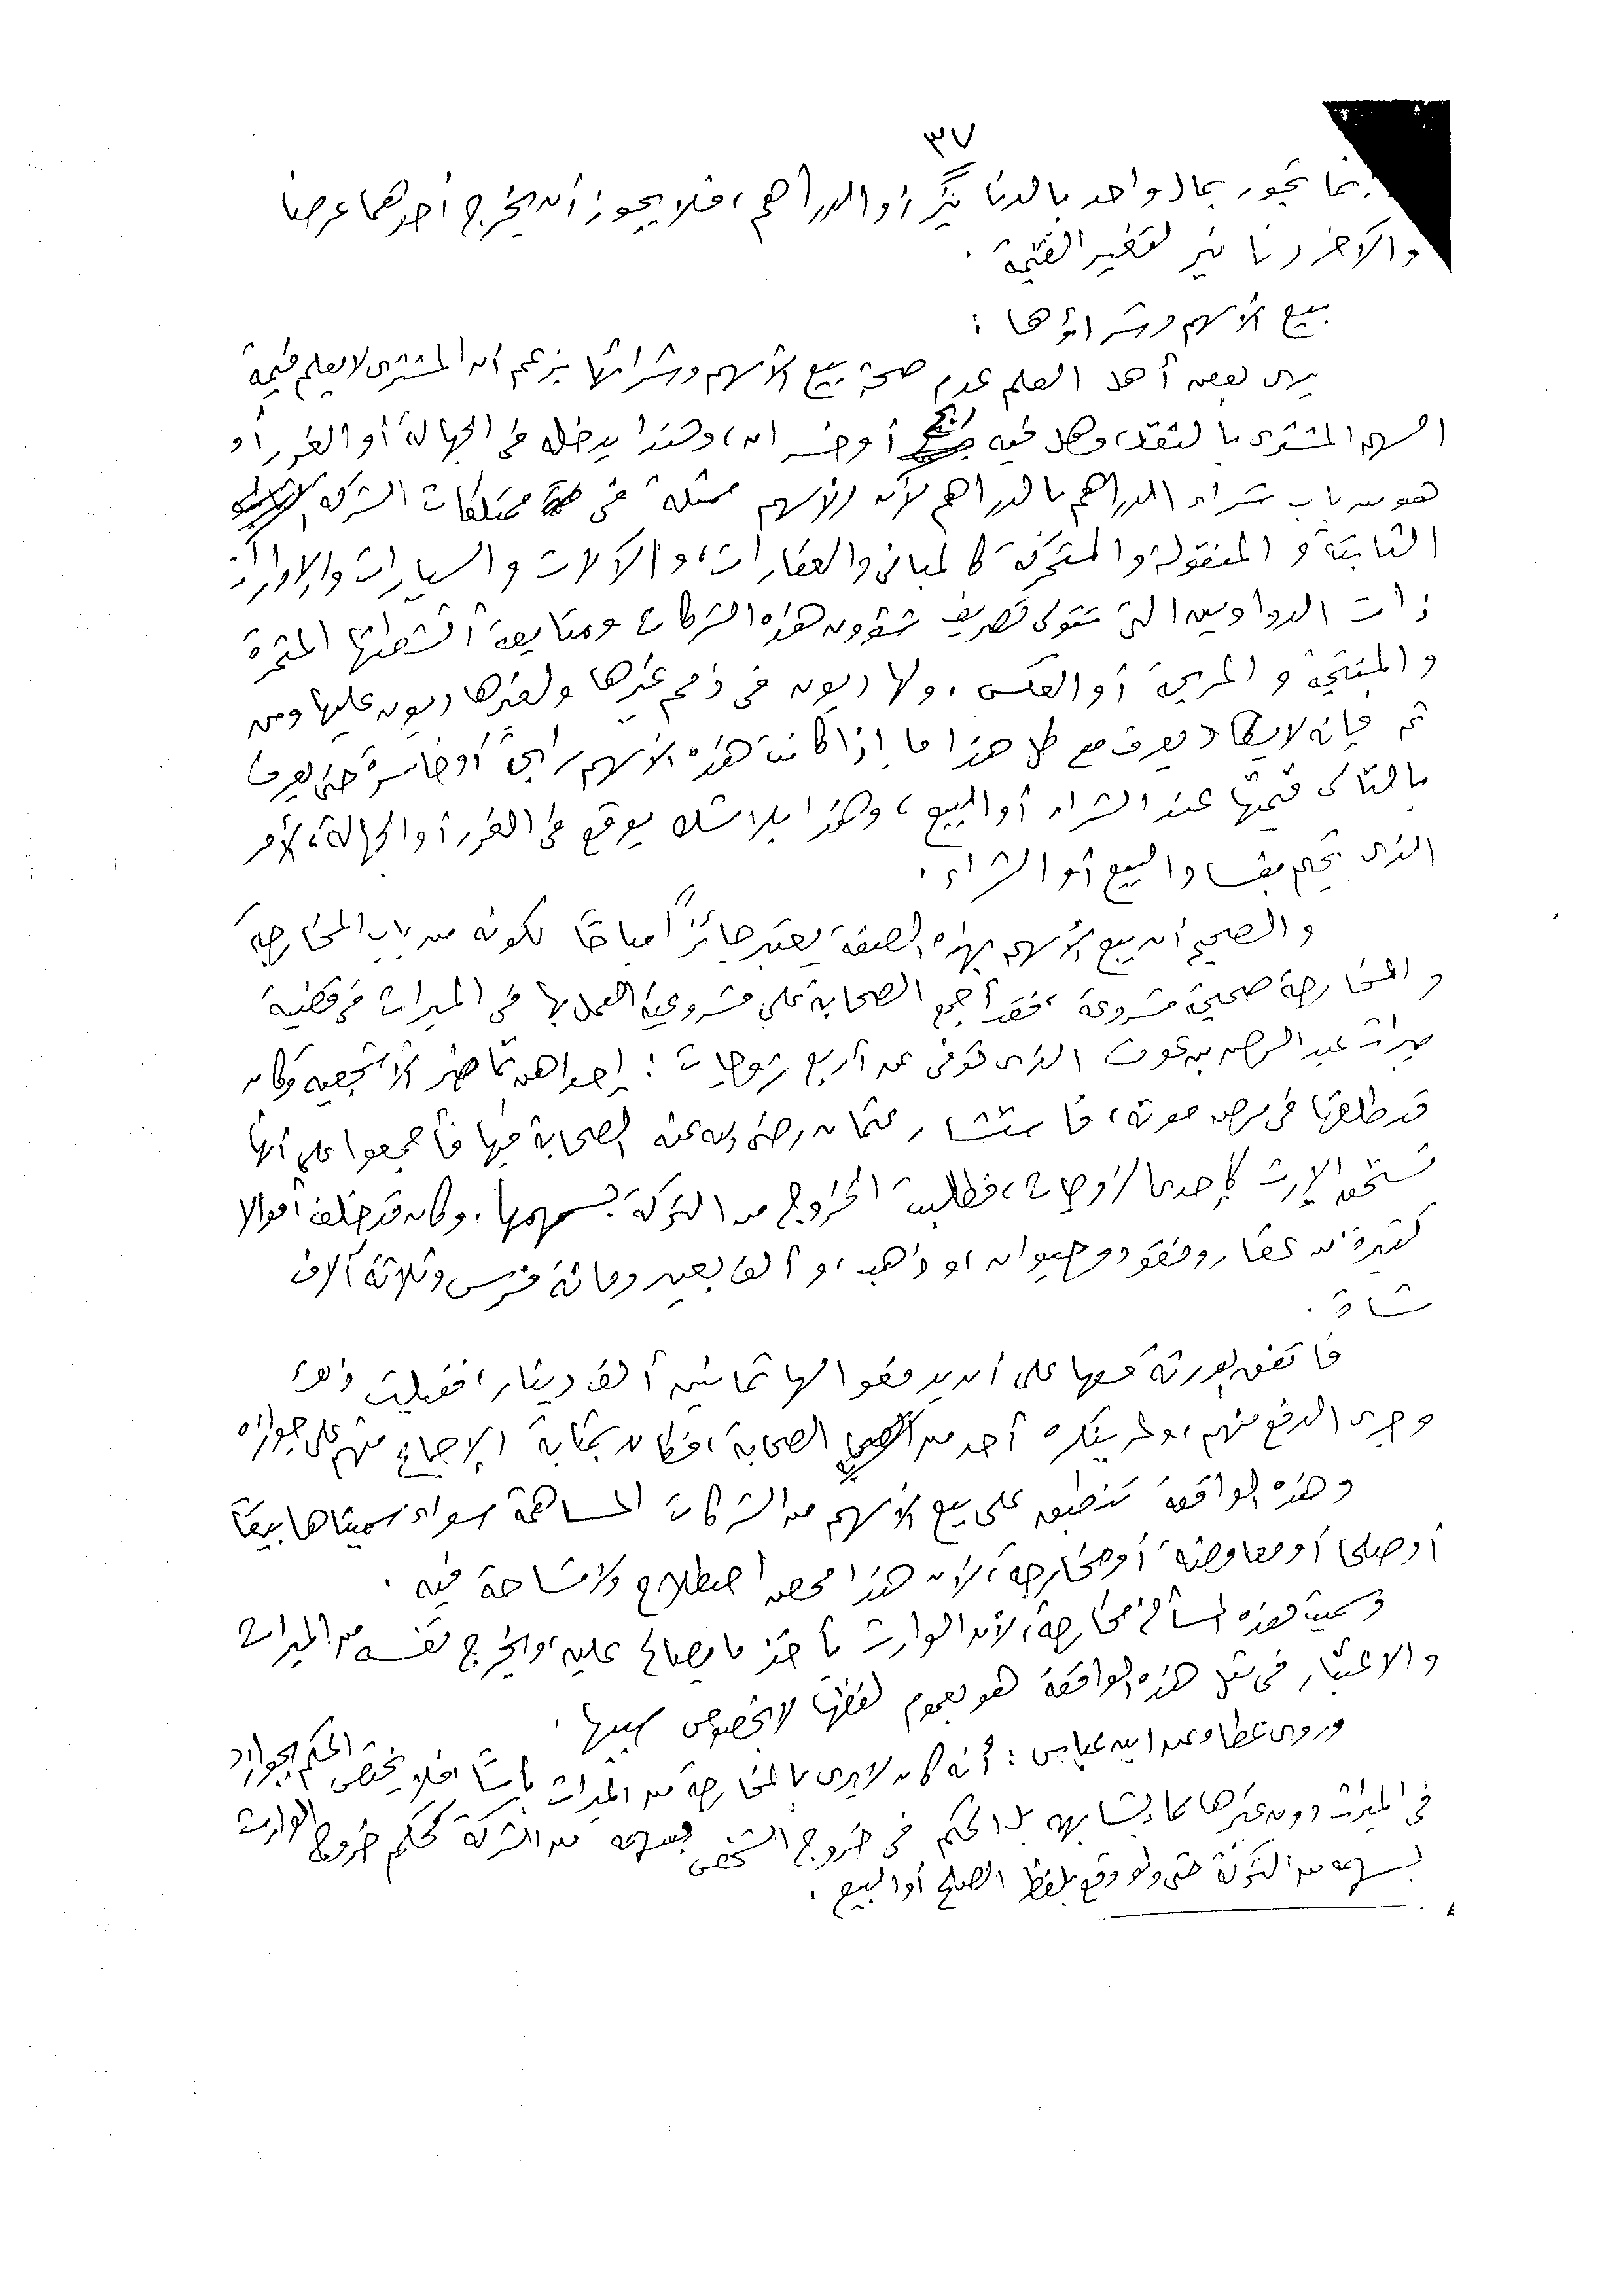 ٣٧
إنما تجوز بمال واحد بالدنانير أو الدراهم، فلا يجوز أن يخرج أحدهما عرضا
والآخر دنانير لتغير القيمة .
بيع الأسهم وشراؤها :
يرى بعض أهل العلم عدم صحة بيع الأسهم وشرائها بزعم أن المشترى لا يعلم قيمة
السهم المشترى بالنقد، وهل فيه ربح أو خسران، وهذا يدخله في الجهالة أو الغرر أو
هو من باب شراء الدراهم بالدراهم لأن الأسهم ممثلة في ممتلكات الشركة
الثابتة و المنقولة و المتحركة كالمبانى والعقارات، و الآلات و السيارات والإدارات
ذات الدواوين التي تتولى تصريف شؤون هذه الشركات ومتابعة أنشطتها المثمرة
و المنتجة و المربحة أو العكس . ولها ديون في ذمم غيرها ولغيرها ديون عليها ومن
ثم فإنه لا يكاد يعرف مع كل هذا ما إذا كانت هذه الأسهم رابحة أو خاسرة حتى يعرف
بالتالى قيمتها عند الشراء أو البيع، وهذا بلا شك يوقع في الغرر أو الجهالة، الأمر
الذى يحكم بفساد البيع أو الشراء .
و الصحيح أن بيع الأسهم بهذه الصفة يعتبر جائزاً مباحًا لكونه من باب المخارجة
و المخارجة صحيحة مشروعة ، فقد أجمع الصحابة على مشروعية العمل بها في الميراث في قضية
ميراث عبد الرحمن بن عوف الذى توفى عن أربع زوجات : إحداهن تماضر الأشجعية وكان
قد طلقها في مرض موته، فاستشار عثمان رضى الله عنه الصحابة فيها فأجمعوا على أنها
تستحق الإرث كإحدى الزوجات، فطلبت الخروج من التركة بسهمها، وكان قد خلف أموالا
كثيرة من عقار ونقود وحيوان، وذهب، وألف بعير ومائة فرس وثلاثة آلاف
شاة .
فاتفق الورثة معها على أن يدفعوا لها ثمانين ألف دينار، فقبلت ذلك
وجرى الدفع منهم، ولم ينكره أحد من الصحابة، فكان بمثابة الإجماع منهم على جوازه
وهذه الواقعة تنطبق على بيع الأسهم من الشركات المساهمة سواء سميناها بيعًا
أو صلحا أو معاوضة أو مخارجة، لأن هذا محض اصطلاح ولا مشاحة فيه .
وسميت هذه المسألة مخارجة، لأن الوارث يأخذ ما يصالح عليه، ويخرج نفسه من الميراث
والاعتبار في مثل هذه الواقعة هو بعموم لفظها لا بخصوص سببها .
وروى عطاء عن ابن عباس : أنه كان لا يرى بالمخارجة من الميراث بأسًا، فلا يختص الحكم بجوازه
في الميراث دون غيرها مما يشابهه بل الحكم في خروج الشخص بسهمه من الشركة كحكم خروج الوارث
بسهمه من التركة حتى ولو وقع بلفظ الصلح أو البيع .